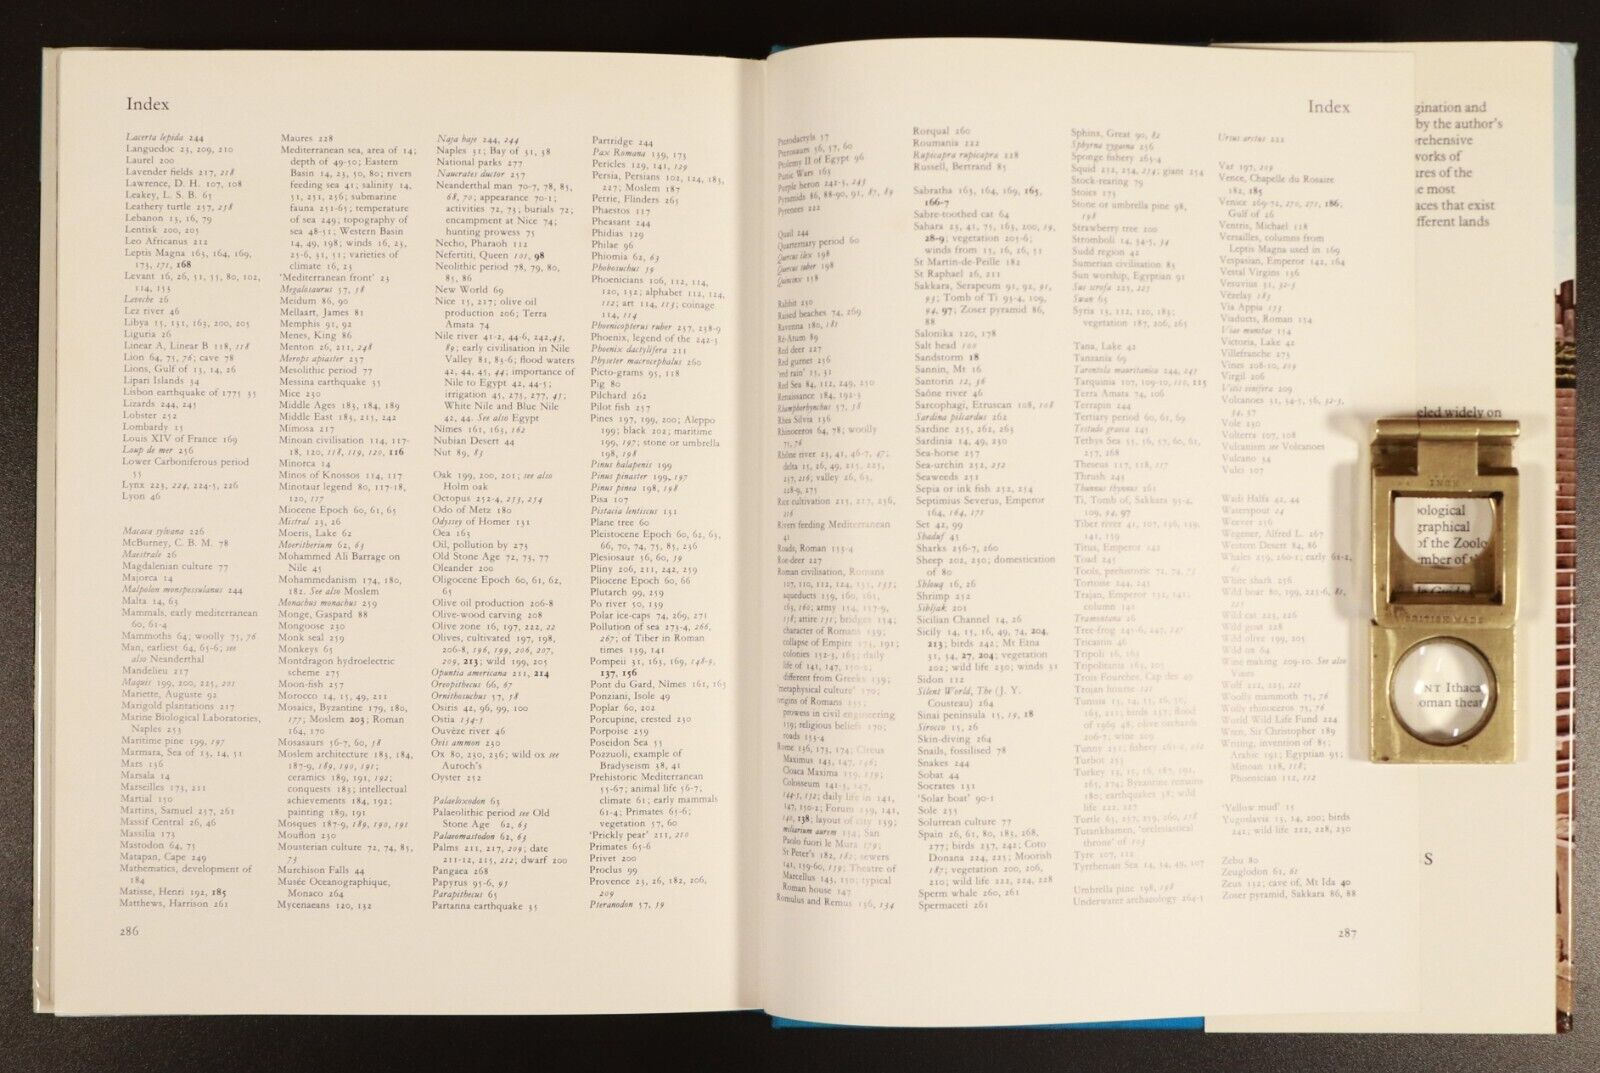 Index
Lacerta lepida 244
Languedoc 23, 209, 210
Laurel 200
Lavender fields 217, 218
Lawrence, D. H. 107, 108
Leakey, L. S. B. 65
Leathery turtle 257, 258
Lebanon 15, 16, 79
Lentisk 200, 205
Leo Africanus 212
Leptis Magna 163, 164, 169,
173, 171, 168
Levant 16, 26, 51, 55, 80, 102,
114, 153
Leveche 26
Lez river 46
Libya 15, 151, 163, 200, 205
Liguria 26
Linear A, Linear B 118, 118
Lion 64, 75, 76; cave 78
Lions, Gulf of 15, 14, 26
Lipari Islands 34
Lisbon earthquake of 1775 35
Lizards 244, 245
Lobster 252
Lombardy 15
Louis XIV of France 169
Loup de mer 256
Lower Carboniferous period
55
Lynx 223, 224, 224-5, 226
Lyon 46
Macaca sylvana 226
McBurney, C. B. M. 78
Maestrale 26
Magdalenian culture 77
Majorca 14
Malpolon monspessulanus 244
Malta 14, 63
Mammals, early mediterranean
60, 61-4
Mammoths 64; woolly 75, 76
Man, earliest 64, 65-6; see
also Neanderthal
Mandelieu 217
Maquis 199, 200, 225, 201
Mariette, Auguste 92
Marigold plantations 217
Marine Biological Laboratories,
Naples 253
Maritime pine 199, 197
Marmara, Sea of 13, 14, 51
Mars 136
Marsala 14
Marseilles 173, 211
Martial 150
Martins, Samuel 257, 261
Massif Central 26, 46
Massilia 173
Mastodon 64, 75
Matapan, Cape 249
Mathematics, development of
184
Matisse, Henri 192, 185
Matthews, Harrison 261
286
Maures 228
Mediterranean sea, area of 14;
depth of 49-50; Eastern
Basin 14, 23, 50, 80; rivers
feeding sea 41; salinity 14,
51, 251, 256; submarine
fauna 251-65; temperature
of sea 249; topography of
sea 48-51; Western Basin
14, 49, 198; winds 16, 23,
25-6, 31, 51; varieties of
climate 16, 25
'Mediterranean front' 23
Megalosaurus 57, 58
Meidum 86, 90
Mellaart, James 81
Memphis 91, 92
Menes, King 86
Menton 26, 211, 248
Merops apiaster 237
Mesolithic period 77
Messina earthquake 35
Mice 230
Middle Ages 183, 184, 189
Middle East 183, 215, 242
Mimosa 217
Minoan civilisation 114, 117-
18, 120, 118, 119, 120, 116
Minorca 14
Minos of Knossos 114, 117
Minotaur legend 80, 117-18,
120, 117
Miocene Epoch 60, 61, 65
Mistral 23, 26
Moeris, Lake 62
Moeritherium 62, 63
Mohammed Ali Barrage on
Nile 45
Mohammedanism 174, 180,
182. See also Moslem
Monachus monachus 259
Monge, Gaspard 88
Mongoose 230
Monk seal 259
Monkeys 65
Montdragon hydroelectric
scheme 275
Moon-fish 257
Morocco 14, 15, 49, 211
Mosaics, Byzantine 179, 180,
177; Moslem 203; Roman
164, 170
Mosasaurs 56-7, 60, 58
Moslem architecture 183, 184,
187-9, 189, 190, 191;
ceramics 189, 191, 192;
conquests 183; intellectual
achievements 184, 192;
painting 189, 191
Mosques 187-9, 189, 190, 191
Mouflon 230
Mousterian culture 72, 74, 85,
73
Murchison Falls 44
Musée Oceanographique,
Monaco 264
Mycenaeans 120, 132
Naja haje 244, 244
Naples 31; Bay of 31, 38
National parks 277
Naucrates ductor 257
Neanderthal man 70-7, 78, 85,
68, 70; appearance 70-1;
activities 72, 73; burials 72;
encampment at Nice 74;
hunting prowess 75
Necho, Pharaoh 112
Nefertiti, Queen 101, 98
Neolithic period 78, 79, 80,
85, 86
New World 69
Nice 15, 217; olive oil
production 206; Terra
Amata 74
Nile river 41-2, 44-6, 242, 43,
89; early civilisation in Nile
Valley 81, 83-6; flood waters
42, 44, 45, 44; importance of
Nile to Egypt 42, 44-5;
irrigation 45, 275, 277, 45;
White Nile and Blue Nile
42, 44. See also Egypt
Nîmes 161, 163, 162
Nubian Desert 44
Nut 89, 83
Oak 199, 200, 201; see also
Holm oak
Octopus 252-4, 253, 254
Odo of Metz 180
Odyssey of Homer 131
Oea 163
Oil, pollution by 273
Old Stone Age 72, 75, 77
Oleander 200
Oligocene Epoch 60, 61, 62,
65
Olive oil production 206-8
Olive-wood carving 208
Olive zone 16, 197, 222, 22
Olives, cultivated 197, 198,
206-8, 196, 199, 206, 207,
209, 213; wild 199, 205
Opuntia americana 211, 214
Oreopithecus 66, 67
Ornithosuchus 57, 58
Osiris 42, 96, 99, 100
Ostia 154-5
Ouvèze river 46
Ovis ammon 230
Ox 80, 230, 236; wild ox see
Auroch's
Oyster 252
Palaeloxodon 63
Palaeolithic period see Old
Stone Age 62, 63
Palaeomastodon 62, 63
Palms 211, 217, 209; date
211-12, 215, 212; dwarf 200
Pangaea 268
Papyrus 95-6, 95
Parapithecus 65
Partanna earthquake 35
Partridge 244
Pax Romana 139, 173
Pericles 129, 141, 129
Persia, Persians 102, 124, 183,
227; Moslem 187
Petrie, Flinders 265
Phaestos 117
Pheasant 244
Phidias 129
Philae 96
Phiomia 62, 63
Phobosuchus 59
Phoenicians 106, 112, 114,
120, 132; alphabet 112, 124,
112; art 114, 113; coinage
114, 114
Phoenicopterus ruber 237, 238-9
Phoenix, legend of the 242-3
Phoenix dactylifera 211
Physeter macrocephalus 260
Picto-grams 95, 118
Pig 80
Pilchard 262
Pilot fish 257
Pines 197, 199, 200; Aleppo
199; black 202; maritime
199, 197; stone or umbrella
198, 198
Pinus halapenis 199
Pinus pinaster 199, 197
Pinus pinea 198, 198
Pisa 107
Pistacia lentiscus 131
Plane tree 60
Pleistocene Epoch 60, 62, 63,
66, 70, 74, 75, 85, 236
Plesiosaur 56, 60, 59
Pliny 206, 211, 242, 259
Pliocene Epoch 60, 66
Plutarch 99, 259
Po river 50, 139
Polar ice-caps 74, 269, 271
Pollution of sea 273-4, 266,
267; of Tiber in Roman
times 139, 141
Pompeii 31, 163, 169, 148-9,
137, 156
Pont du Gard, Nîmes 161, 163
Ponziani, Isole 49
Poplar 60, 202
Porcupine, crested 230
Porpoise 259
Poseidon Sea 55
Pozzuoli, example of
Bradyseism 38, 41
Prehistoric Mediterranean
55-67; animal life 56-7;
climate 61; early mammals
61-4; Primates 65-6;
vegetation 57, 60
'Prickly pear' 211, 210
Primates 65-6
Privet 200
Proclus 99
Provence 23, 26, 182, 206,
209
Pteranodon 57, 59
Index
Pterodactyls 57
Pterosaurs 56, 57, 60
Ptolemy II of Egypt 96
Punic Wars 163
Purple heron 242-3, 243
Pyramids 86, 88-90, 91, 87, 89
Pyrenees 222
Quail 244
Quaternary period 60
Quercus ilex 198
Quercus suber 198
Quincunx 158
Rabbit 230
Raised beaches 74, 269
Ravenna 180, 181
Rē-Atum 89
Red deer 227
Red gurnet 256
'red rain' 25, 31
Red Sea 84, 112, 249, 250
Renaissance 184, 192-3
Rhamphorhynchus 57, 58
Rhea Silvia 136
Rhinoceros 64, 78; woolly
75, 76
Rhône river 23, 41, 46-7, 47;
delta 15, 16, 49, 215, 225,
237, 216; valley 26, 63,
228-9, 275
Rice cultivation 215, 227, 236,
216
Rivers feeding Mediterranean
41
Roads, Roman 153-4
Roe-deer 227
Roman civilisation, Romans
107, 110, 112, 124, 131, 135;
aqueducts 159, 160, 161,
163, 160; army 154, 157-9,
158; attire 151; bridges 154;
character of Romans 139;
collapse of Empire 173, 191;
colonies 152-3, 163; daily
life of 141, 147, 150-2;
different from Greeks 139;
'metaphysical culture' 170;
origins of Romans 135;
prowess in civil engineering
159; religious beliefs 170;
roads 153-4
Rome 136, 173, 174; Circus
Maximus 143, 147, 146;
Cloaca Maxima 159, 159;
Colosseum 141-3, 147,
144-5, 152; daily life in 141,
147, 150-2; Forum 139, 141,
140, 138; layout of city 139;
miliarium aurem 154; San
Paolo fuori le Mura 179;
St Peter's 182, 182; sewers
141, 159-60, 159; Theatre of
Marcellus 143, 150; typical
Roman house 147
Romulus and Remus 136, 134
Rorqual 260
Roumania 222
Rupicapra rupicapra 228
Russell, Bertrand 85
Sabratha 163, 164, 169, 165,
166-7
Sabre-toothed cat 64
Sahara 23, 41, 75, 163, 200, 19,
28-9; vegetation 205-6;
winds from 15, 16, 26, 31
St Martin-de-Peille 182
St Raphael 26, 211
Sakkara, Serapeum 91, 92, 91,
93; Tomb of Ti 93-4, 109,
94, 97; Zoser pyramid 86,
88
Salonika 120, 178
Salt head 100
Sandstorm 18
Sannin, Mt 16
Santorin 32, 36
Saône river 46
Sarcophagi, Etruscan 108, 108
Sardina pilcardus 262
Sardine 255, 262, 263
Sardinia 14, 49, 230
Sea-horse 257
Sea-urchin 252, 252
Seaweeds 251
Sepia or ink fish 252, 254
Septimius Severus, Emperor
164, 164, 171
Set 42, 99
Shaduf 45
Sharks 256-7, 260
Sheep 202, 230; domestication
of 80
Shlouq 16, 26
Shrimp 252
Sibljak 201
Sicilian Channel 14, 26
Sicily 14, 15, 16, 49, 74, 204,
213; birds 242; Mt Etna
31, 34, 27, 204; vegetation
202; wild life 230; winds 31
Sidon 112
Silent World, The (J. Y.
Cousteau) 264
Sinai peninsula 15, 19, 28
Sirocco 15, 26
Skin-diving 264
Snails, fossilised 78
Snakes 244
Sobat 44
Socrates 131
'Solar boat' 90-1
Sole 255
Solutrean culture 77
Spain 26, 61, 80, 183, 168,
277; birds 237, 242; Coto
Donana 224, 225; Moorish
187; vegetation 200, 206,
210; wild life 222, 224, 228
Sperm whale 260, 261
Spermaceti 261
Sphinx, Great 90, 82
Sphyrna zygaena 256
Sponge fishery 263-4
Squid 252, 254, 254; giant 254
Stock-rearing 79
Stoics 173
Stone or umbrella pine 98,
198
Strawberry tree 200
Stromboli 14, 34-5, 34
Sudd region 42
Sumerian civilisation 85
Sun worship, Egyptian 91
Sus scrofa 225, 225
Swan 65
Syria 15, 112, 120, 183;
vegetation 187, 206, 265
Tana, Lake 42
Tanzania 69
Tarentola mauritanica 244, 247
Tarquinia 107, 109-10, 110, 125
Terra Amata 74, 106
Terrapin 244
Tertiary period 60, 61, 69
Testudo graeca 245
Tethys Sea 55, 56, 57, 60, 61,
257, 268
Theseus 117, 118, 117
Thrush 245
Thunnus thynnus 261
Ti, Tomb of, Sakkara 93-4,
109, 94, 97
Tiber river 41, 107, 136, 139,
141, 159
Titus, Emperor 141
Toad 245
Tools, prehistoric 72, 74, 73
Tortoise 244, 245
Trajan, Emperor 132, 141,
column 141
Tramontana 26
Tree-frog 245-6, 247, 247
Tricastin 46
Tripoli 16, 163
Tripolitania 163, 205
Trois Fourches, Cap des 49
Trojan hourse 121
Tunisia 13, 14, 15, 26, 50,
163, 211; birds 237; flood
of 1969 48; olive orchards
206-7; wine 209
Tunny 251; fishery 261-2, 262
Turbot 255
Turkey 13, 15, 16, 187, 191,
265, 274; Byzantine remains
180; earthquakes 38; wild
life 222, 227
Turtle 63, 257, 259, 260, 258
Tutankhamen, 'ecclesiastical
throne' of 103
Tyre 107, 112
Tyrrhenian Sea 14, 34, 49, 107
Umbrella pine 198, 198
Underwater archaeology 264-5
Ursus arctus 222
Var 197, 219
Vence, Chapelle du Rosaire
182, 185
Venice 269-72, 270, 271, 186;
Gulf of 26
Ventris, Michael 118
Versailles, columns from
Leptis Magna used in 169
Vespasian, Emperor 142, 164
Vestal Virgins 136
Vesuvius 31, 32-3
Vézelay 183
Via Appia 173
Viaducts, Roman 154
Viae munitae 154
Victoria, Lake 42
Villefranche 273
Vines 208-10, 209
Virgil 206
Vitis vinifera 209
Volcanoes 31, 34-5, 36, 32-3,
34, 37
Vole 230
Volterra 107, 108
Vulcanism see Volcanoes
Vulcano 34
Vulci 107
Wadi Halfa 42, 44
Waterspout 24
Weever 256
Wegener, Alfred L. 267
Western Desert 84, 86
Whales 259, 260-1; early 61-2,
White shark 256
Wild boar 80, 199, 225-6, 81,
225
Wild cat 225, 226
Wild goat 228
Wild olive 199, 205
Wild ox 64
Wine making 209-10. See also
Vines
Wolf 222, 223, 221
Woolly mammoth 75, 76
Woolly rhinoceros 75, 76
World Wild Life Fund 224
Wren, Sir Christopher 189
Writing, invention of 85;
Arabic 191; Egyptian 95;
Minoan 118, 118;
Phoenician 112, 112
'Yellow mud' 15
Yugoslavia 13, 14, 200; birds
242; wild life 222, 228, 230
Zebu 80
Zeuglodon 61, 62
Zeus 132; cave of, Mt Ida 40
Zoser pyramid, Sakkara 86, 88
287
gination and
by the author's
rehensive
works of
res of the
e most
aces that exist
fferent lands
eled widely on
INCH
ological
graphical
of the Zoolo
mber of
BRITISH MADE
NT Ithaca
oman theat
S